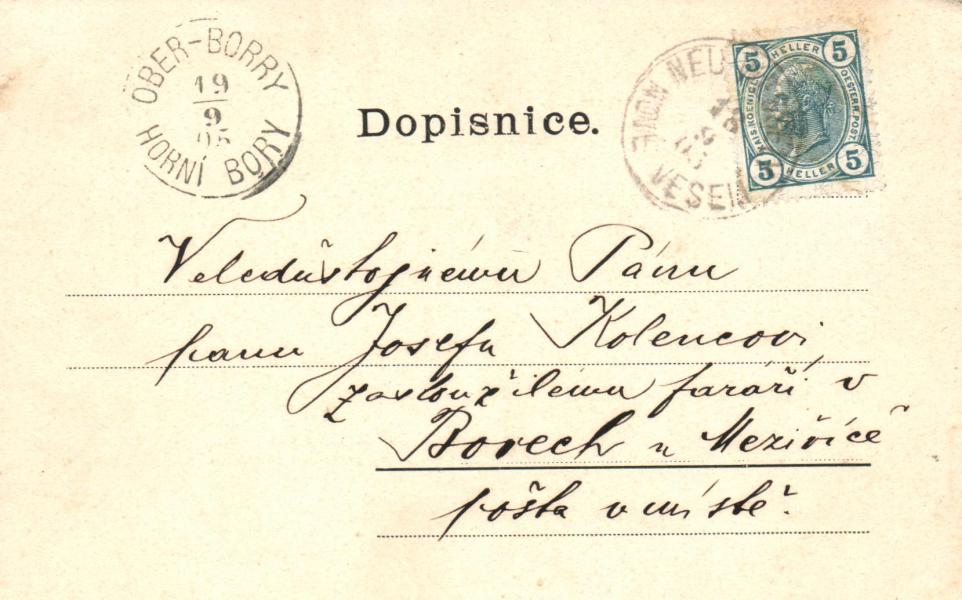 OBER-BORRY
19
9
05
HORNÍ BORY
Dopisnice.
NEU-
VESELÍ
5 HELLER 5
KAIS. KOENIGL. OESTERR. POST.
5 HELLER 5
Veledůstojnému Pánu
panu Josefu Kolencovi
zasloužilému faráři v
Borech u Meziříče
pošta v místě.